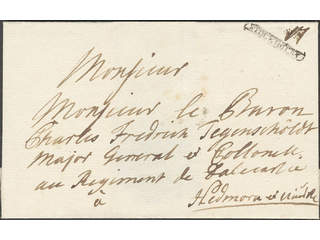 Monsieur
Monsieur le Baron
Charles Fredrich Tegenschöldt
Major General et Collonell
au Regiment de Dalecarlie
à Hedmora et